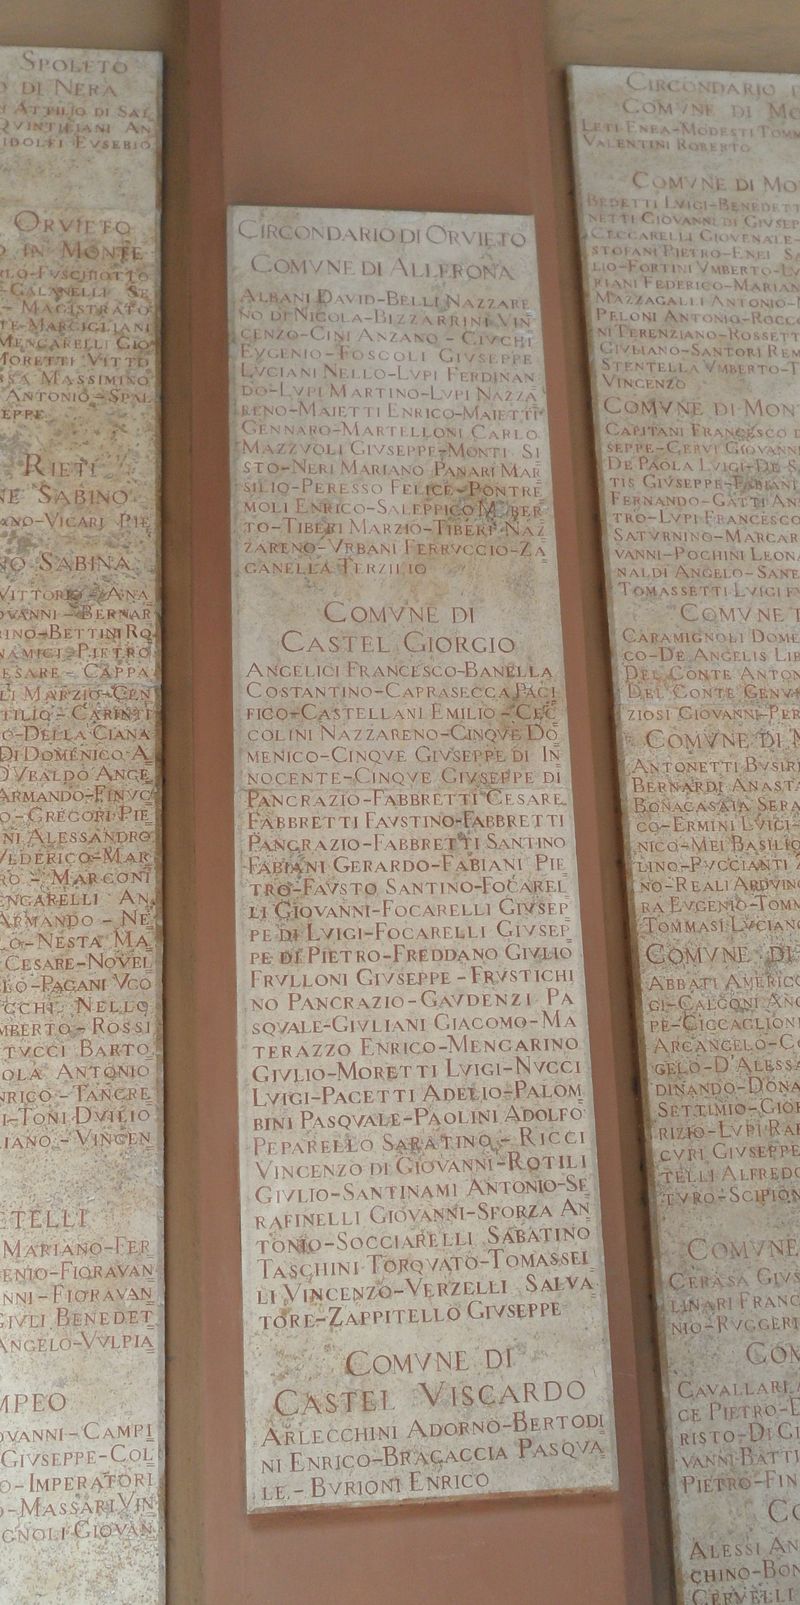 SPOLETO
DI NERA
ATTILIO DI SAL
QVINTILIANI AN
RIDOLFI EVSEBIO
ORVIETO
IN MONTE
FVSCHIOTTO
GALANELLI SE
MAGISTRATO
MARCIGLIANI
MENCARELLI GIO
MORETTI VITTO
MASSIMINO
ANTONIO-SPAL
RIETI
SABINO
VICARI PIE
SABINA
VITTORIO-ANA
BERNAR
BETTINI RO
PIETRO
CAPPA
MARZIO-CEN
CARINTI
DELLA CIANA
DI DOMENICO A
D'VBALDO ANGE
ARMANDO-FINVC
GREGORI PIE
ALESSANDRO
FEDERICO-MAR
MARCONI
AN
ARMANDO-NE
NESTA MA
CESARE-NOVEL
PAGANI VGO
NELLO
ROSSI
BARTO
ANTONIO
TANCRE
TONI DVILIO
VINCEN
MARIANO-FER
FIORAVAN
FIORAVAN
BENEDET
ANGELO-VVLPIA
CAMPI
GIVSEPPE-COL
IMPERATORI
MASSARI VIN
GIOVAN
CIRCONDARIO DI ORVIETO
COMVNE DI ALLERONA
ALBANI DAVID-BELLI NAZZARE
NO DI NICOLA-BIZZARRINI VIN
CENZO-CINI ANZANO-CIVCHI
EVGENIO-FOSCOLI GIVSEPPE
LVCIANI NELLO-LVPI FERDINAN
DO-LVPI MARTINO-LVPI NAZZA
RENO-MAIETTI ENRICO-MAIETTI
GENNARO-MARTELLONI CARLO
MAZZVOLI GIVSEPPE-MONTI SI
STO-NERI MARIANO PANARI MAR
SILIO-PERESSO FELICE-PONTRE
MOLI ENRICO-SALEPPICO VMBER
TO-TIBERI MARZIO-TIBERI NAZ
ZARENO-VRBANI FERRVCCIO-ZA
GANELLA TERZILIO
COMVNE DI
CASTEL GIORGIO
ANGELICI FRANCESCO-BANELLA
COSTANTINO-CAPRASECCA PACI
FICO-CASTELLANI EMILIO-CEC
COLINI NAZZARENO-CINQVE DO
MENICO-CINQVE GIVSEPPE DI IN
NOCENTE-CINQVE GIVSEPPE DI
PANCRAZIO-FABBRETTI CESARE
FABBRETTI FAVSTINO-FABBRETTI
PANCRAZIO-FABBRETTI SANTINO
FABIANI GERARDO-FABIANI PIE
TRO-FAVSTO SANTINO-FOCAREL
LI GIOVANNI-FOCARELLI GIVSEP
PE DI LVIGI-FOCARELLI GIVSEP
PE DI PIETRO-FREDDANO GIVLIO
FRVLLONI GIVSEPPE-FRVSTICHI
NO PANCRAZIO-GAVDENZI PA
SQVALE-GIVLIANI GIACOMO-MA
TERAZZO ENRICO-MENGARINO
GIVLIO-MORETTI LVIGI-NVCCI
LVIGI-PACETTI ADELIO-PALOM
BINI PASQVALE-PAOLINI ADOLFO
PEPARELLO SABATINO-RICCI
VINCENZO DI GIOVANNI-ROTILI
GIVLIO-SANTINAMI ANTONIO-SE
RAFINELLI GIOVANNI-SFORZA AN
TONIO-SOCCIARELLI SABATINO
TASCHINI TORQVATO-TOMASSEL
LI VINCENZO-VERZELLI SALVA
TORE-ZAPPITELLO GIVSEPPE
COMVNE DI
CASTEL VISCARDO
ARLECCHINI ADORNO-BERTODI
NI ENRICO-BRAGACCIA PASQVA
LE-BVRIONI ENRICO
CIRCONDARIO
COMVNE DI
LETI ENEA-MODESTI
VALENTINI ROBERTO
COMVNE DI
BEDETTI LVIGI-BENEDETT
NETTI GIOVANNI DI GIVSEP
CECCARELLI GIOVENALE-
STOFANI PIETRO-ENEI
LIO-FORTINI VMBERTO-
RIANI FEDERICO-MARIAN
MAZZAGALLI ANTONIO-
PELONI ANTONIO-ROCC
NI TERENZIANO-ROSSETT
GIVLIANO-SANTORI REM
STENTELLA VMBERTO-T
VINCENZO
COMVNE DI MON
CAPITANI FRANCESCO
SEPPE-CERVI GIOVANNI
DE PAOLA LVIGI-DE S
TIS GIVSEPPE-FABIANI
FERNANDO-GATTI AN
TRO-LVPI FRANCESCO
SATVRNINO-MARCAR
VANNI-POCHINI LEONA
NALDI ANGELO-SANT
TOMASSETTI LVIGI
COMVNE
CARAMIGNOLI DOME
CO-DE ANGELIS LIB
DEL CONTE ANTON
DEL CONTE GENV
ZIOSI GIOVANNI-PER
COMVNE DI
ANTONETTI BVSIRI
BERNARDI ANASTA
BONACASATA SERA
CO-ERMINI LVIGI-
NICO-MEI BASILIO
LINO-PVCCIANTI
NO-REALI ARDVINO
RA EVGENIO-TOMM
TOMMASI LVCIANO
COMVNE DI
ABBATI AMERICO
GI-CALCONI ANG
PE-CICCAGLIONI
ARCANGELO-CO
GELO-D'ALESSA
DINANDO-DONA
SETTIMIO-GIOR
RIZIO-LVPI RAF
CVRI GIVSEPPE
TELLI ALFREDO
TVRO-SCIPION
COMVNE
CERASA GIVS
LINARI FRANC
NIO-RVGGERI
CAVALLARI
CE PIETRO-
RISTO-DI GI
VANNI BATTI
PIETRO-FIN
ALESSI AN
CHINO-BON
CERVELLI